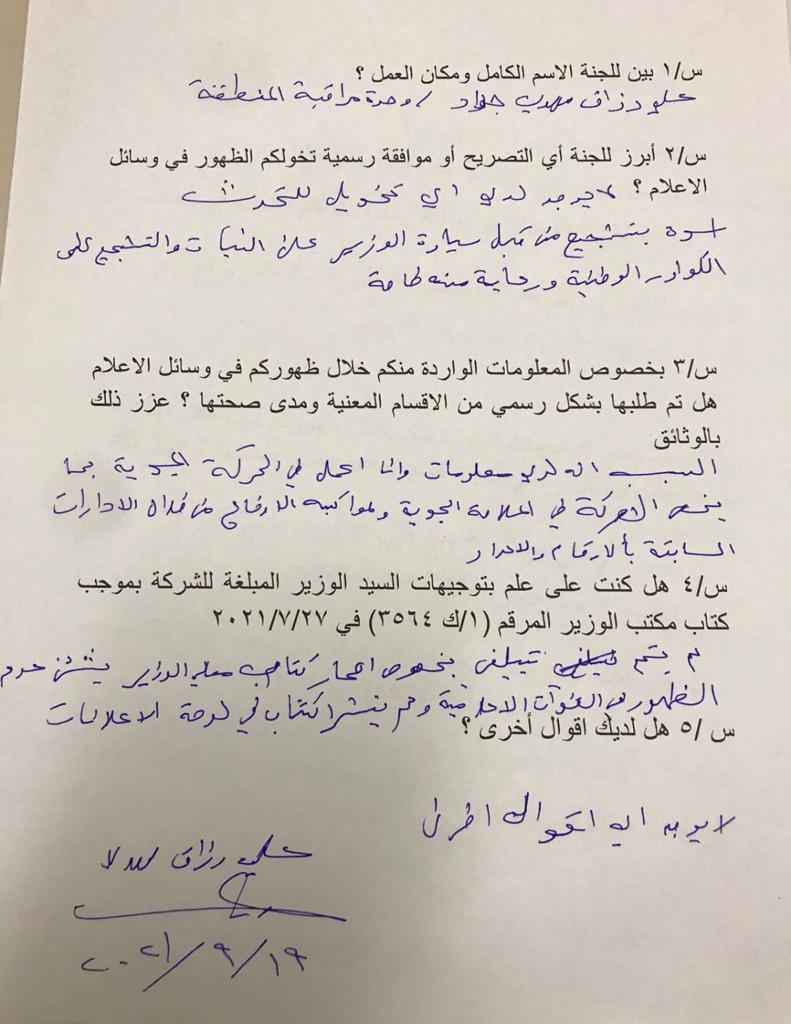 س/١ بين للجنة الاسم الكامل ومكان العمل ؟
علي رزاق مهدي جواد / وحدة مراقبة المنطقة
س/٢ أبرز للجنة أي التصريح أو موافقة رسمية تخولكم الظهور في وسائل
الاعلام ؟ لا يوجد لدي اي تخويل للتحدث
اسوة بتشجيع من قبل سيادة الوزير على والتشجيع على
الكوادر الوطنية ورعاية
س/٣ بخصوص المعلومات الواردة منكم خلال ظهوركم في وسائل الاعلام
هل تم طلبها بشكل رسمي من الاقسام المعنية ومدى صحتها ؟ عزز ذلك
بالوثائق
السبب انه لدي معلومات وانا اعمل في الحركة الجوية بما
يخص الشركة في الملاحة الجوية ولمواكبة من الادارات
السابقة بألارقام والاعداد
س/٤ هل كنت على علم بتوجيهات السيد الوزير المبلغة للشركة بموجب
كتاب مكتب الوزير المرقم (١/ك ٣٥٦٤) في ٢٠٢١/٧/٢٧
لم يتم تبليغي بخصوص اصدار كتاب معالي الوزير بشأن عدم
الظهور في القنوات الاعلامية ولم ينشر الكتاب في لوحة الاعلانات
س /٥ هل لديك اقوال أخرى ؟
لا يوجد اي اقوال اخرى
علي رزاق مهدي
٢٠٢١/٩/١٩